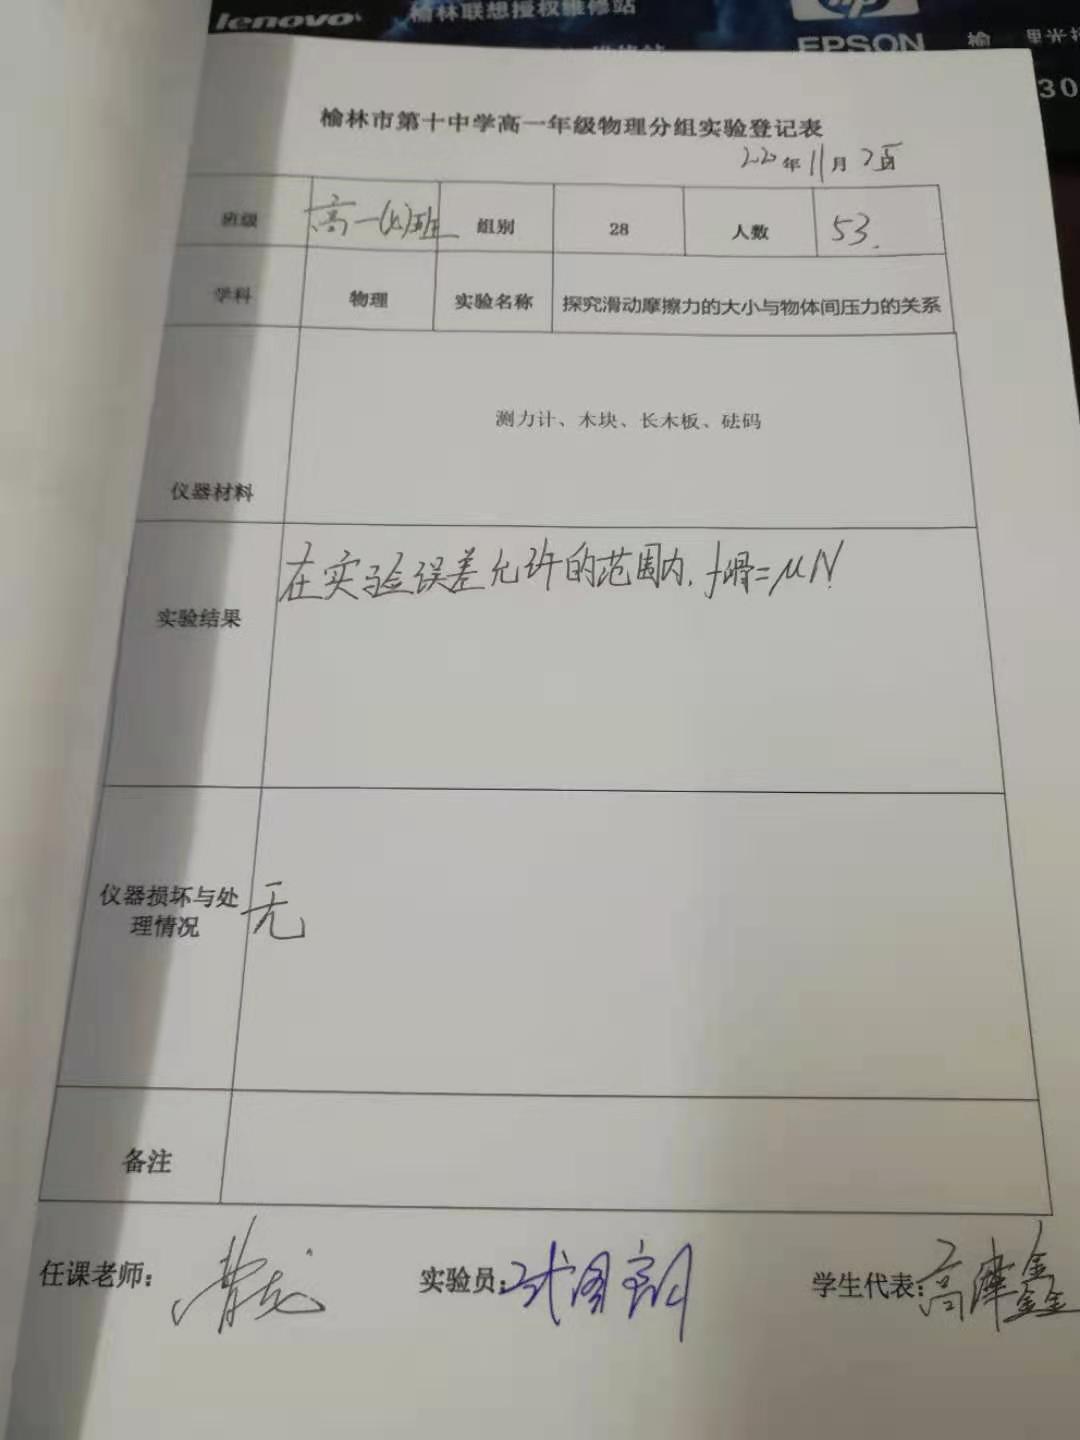 lenovo 榆林联想授权维修站
hp
EPSON 榆
30
榆林市第十中学高一年级物理分组实验登记表
年11月
班级 高一 班 组别 28 人数 53.
学科 物理 实验名称 探究滑动摩擦力的大小与物体间压力的关系
测力计、木块、长木板、砝码
仪器材料
在实验误差允许的范围内,f滑=μN.
实验结果
仪器损坏与处
理情况
无
备注
任课老师: 实验员: 学生代表:高 鑫